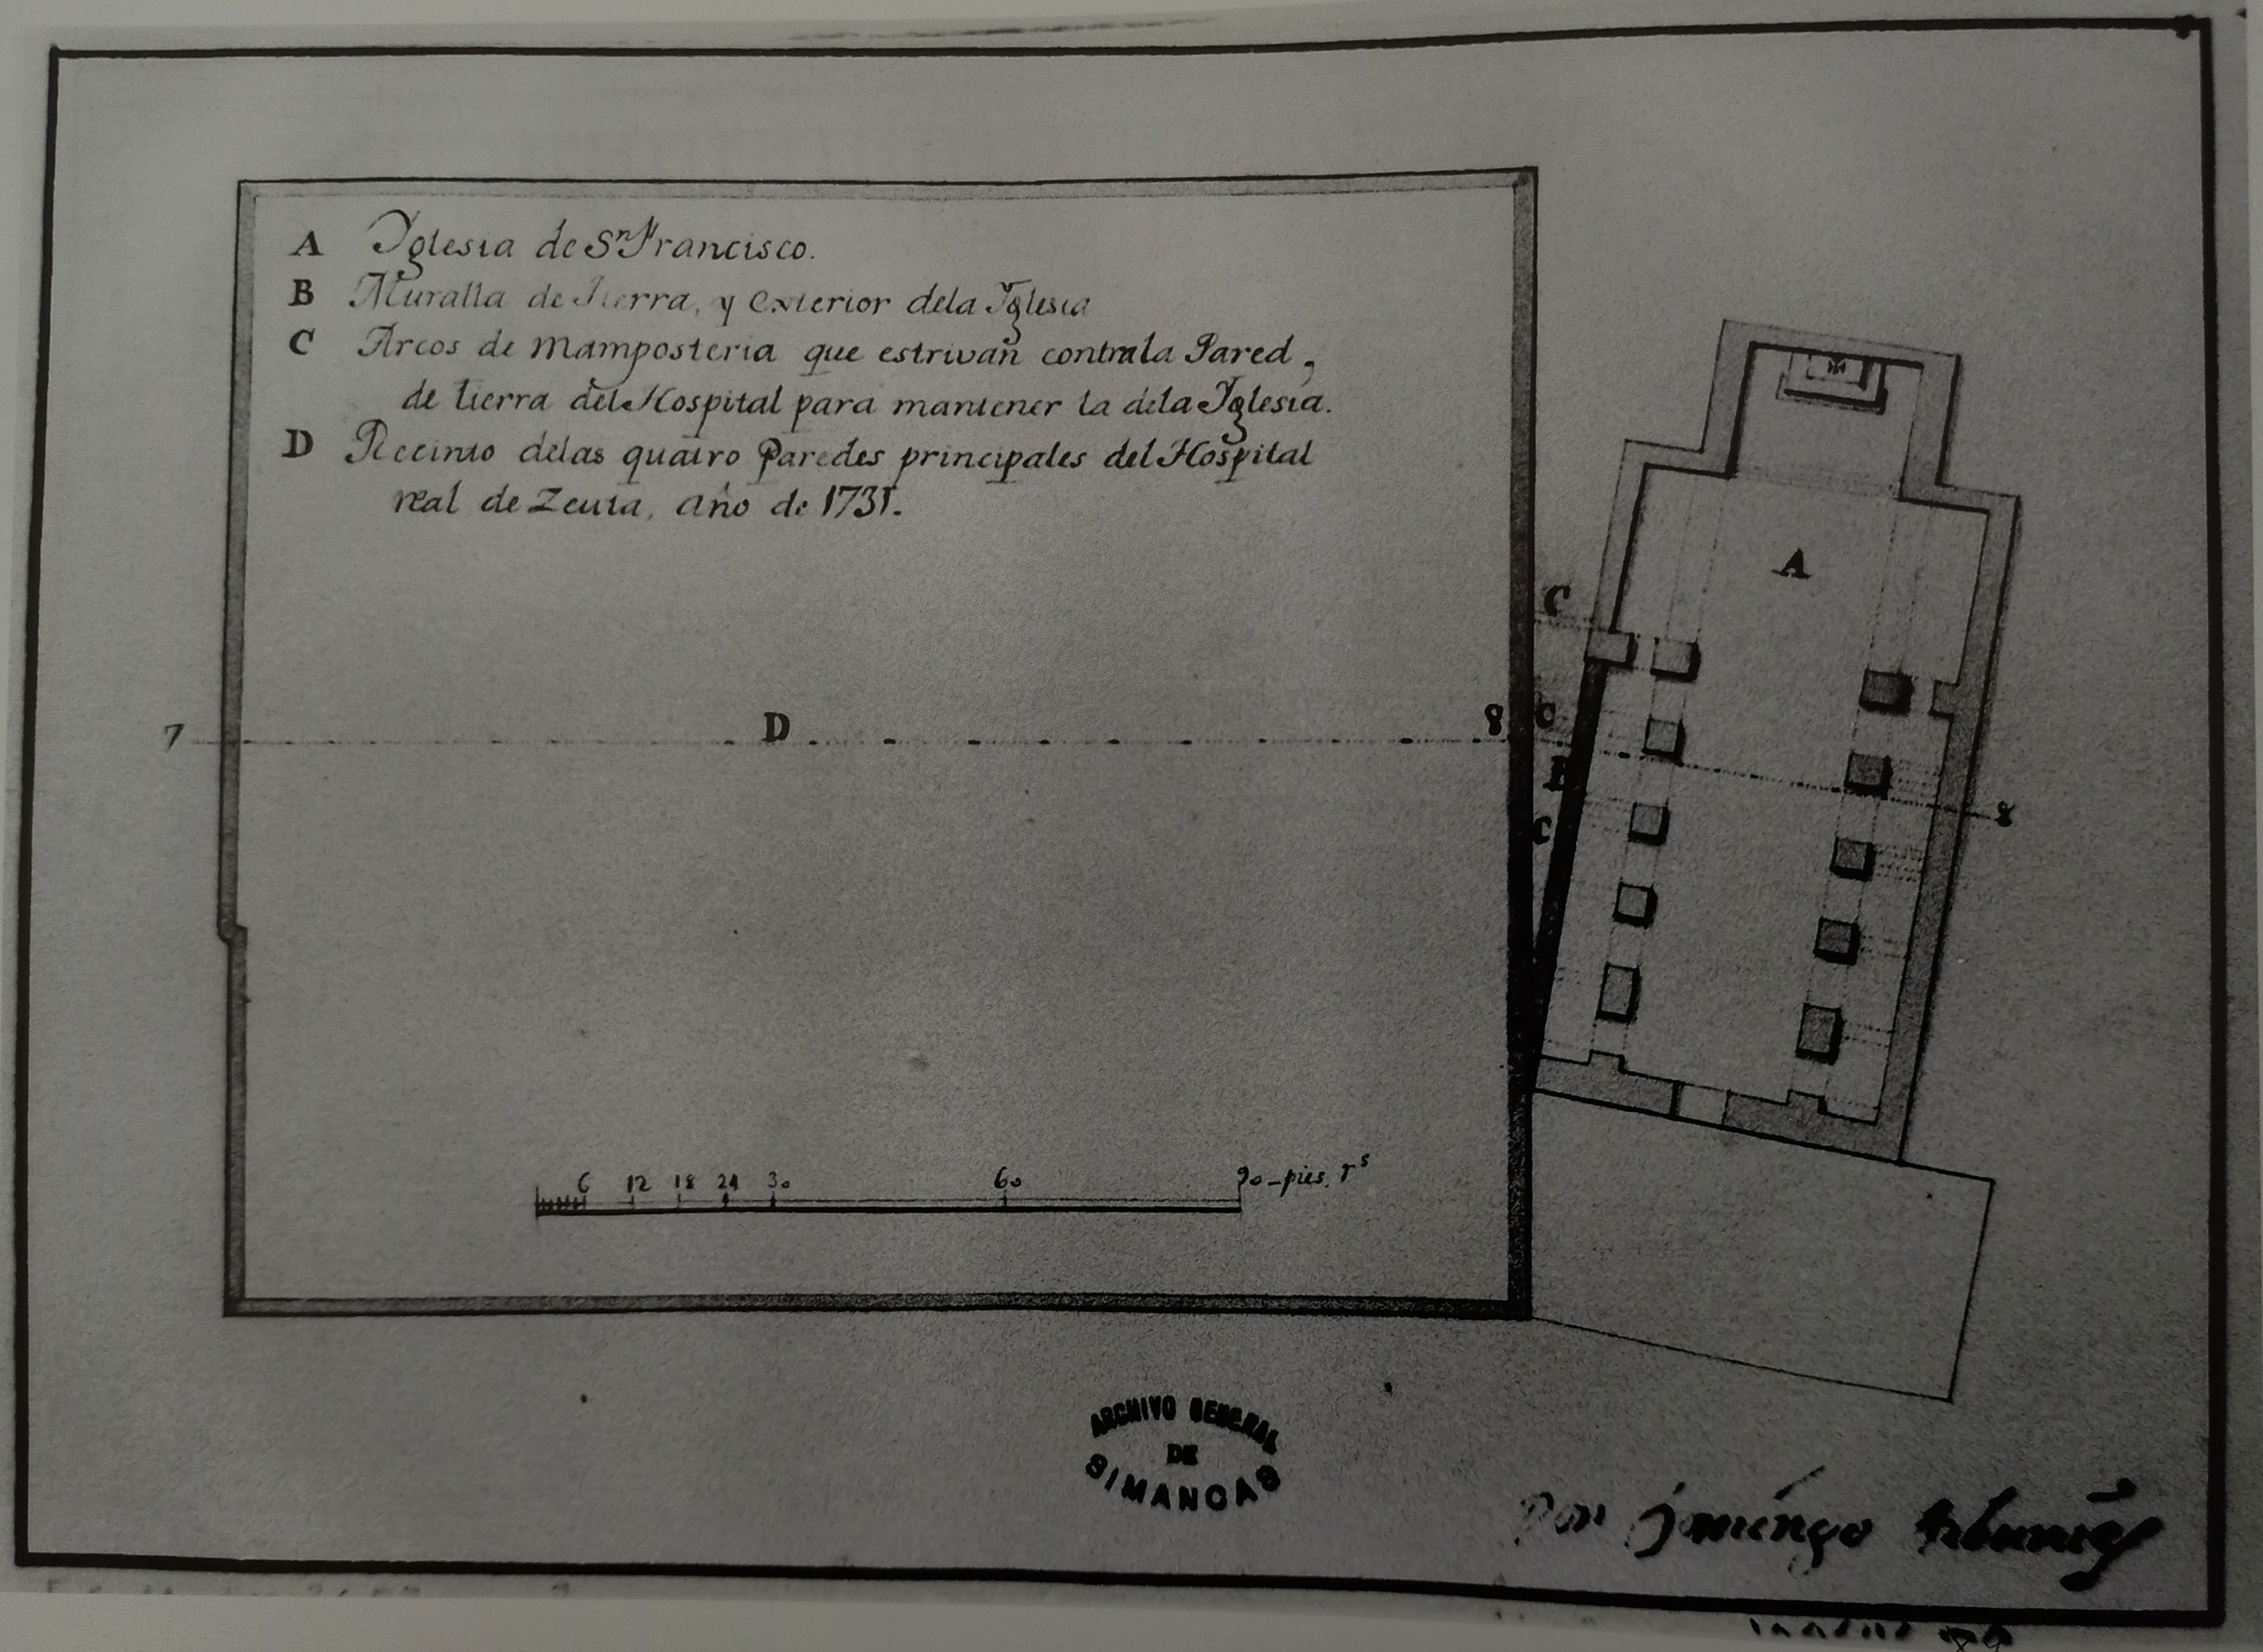 A Yglesia de Sn Francisco.
B Muralla de Tierra, y exterior dela Yglesia
C Arcos de mamposteria que estrivan contrala Pared,
de tierra del Hospital para mantener la dela Yglesia.
D Recinto delas quatro Paredes principales del Hospital
real de Zeuta, año de 1731.
A
C
7 D 8 C
B
8
C
6 12 18 24 30 60 90 pies. rs
ARCHIVO GENERAL
DE
SIMANCAS
Por